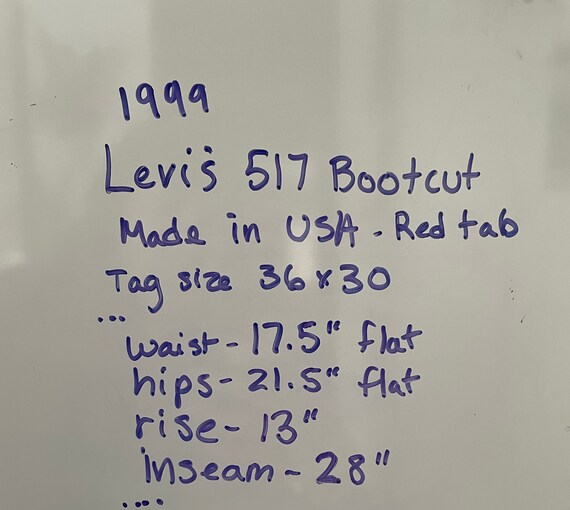 1999
Levi's 517 Bootcut
Made in USA - Red tab
Tag size 36 x 30
...
waist - 17.5" flat
hips - 21.5" flat
rise - 13"
inseam - 28"
....